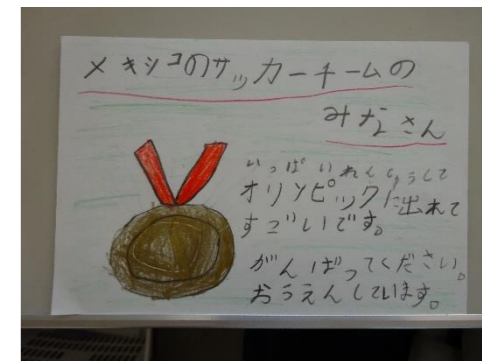 メキシコのサッカーチームの
みなさん
いっぱいれんしゅうして
オリンピックに出れて
すごいです。
がんばってください。
おうえんしています。